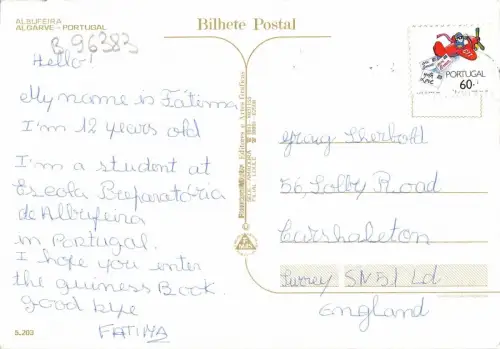 ALBUFEIRA
ALGARVE - PORTUGAL
Bilhete Postal
B 96383
Hello!
My name is Fátima
I'm 12 years old
I'm a student at
Escola Preparatória
de Albufeira
in Portugal.
I hope you enter
the guiness Book.
good bye
FATIMA
S.203
PORTUGAL
60
graig Sherbold
56, Solby Road
Carshaleton
Surrey SN51 Ld
England